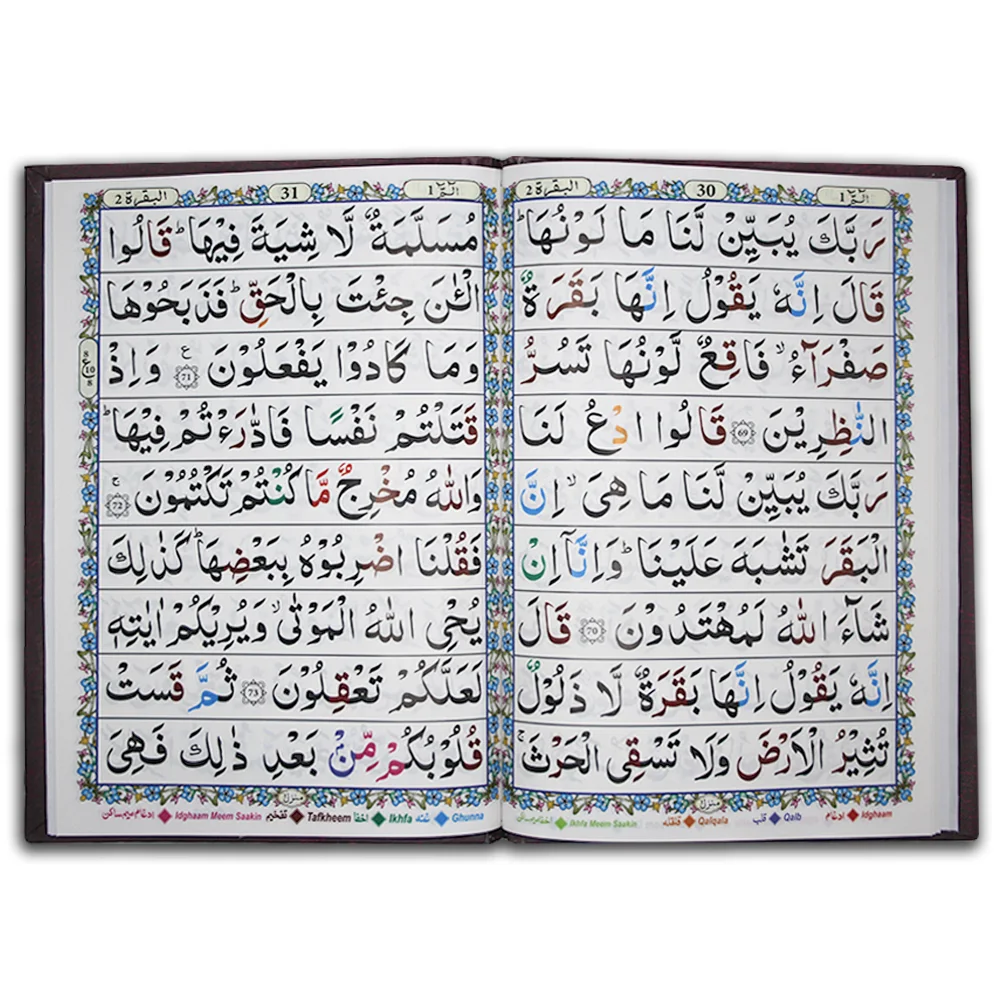 الٓمّٓ 1
30
البقرة 2
رَبَّكَ يُبَيِّنْ لَّنَا مَا لَوْنُهَا ؕ
قَالَ اِنَّهٗ يَقُوْلُ اِنَّهَا بَقَرَةٌ
صَفْرَآءُ ۙ فَاقِعٌ لَّوْنُهَا تَسُرُّ
النّٰظِرِيْنَ 69 قَالُوا ادْعُ لَنَا
رَبَّكَ يُبَيِّنْ لَّنَا مَا هِىَ ۙ اِنَّ
الْبَقَرَ تَشٰبَهَ عَلَيْنَا ؕ وَاِنَّآ اِنْ
شَآءَ اللّٰهُ لَمُهْتَدُوْنَ 70 قَالَ
اِنَّهٗ يَقُوْلُ اِنَّهَا بَقَرَةٌ لَّا ذَلُوْلٌ
تُثِيْرُ الْاَرْضَ وَلَا تَسْقِى الْحَرْثَ ۚ
منزل
Idghaam ادغام Qalb قلب Qalqala قلقله Ikhfa Meem Saakin اخفا میم ساکن
الٓمّٓ 1
31
البقرة 2
مُسَلَّمَةٌ لَّا شِيَةَ فِيْهَا ؕ قَالُوا
الْـٰٔنَ جِئْتَ بِالْحَقِّ ؕ فَذَبَحُوْهَا
وَمَا كَادُوْا يَفْعَلُوْنَ 71 ع وَاِذْ
8 ع 10 8
قَتَلْتُمْ نَفْسًا فَادّٰرَءْتُمْ فِيْهَا ؕ
وَاللّٰهُ مُخْرِجٌ مَّا كُنْتُمْ تَكْتُمُوْنَ 72 ۚ
فَقُلْنَا اضْرِبُوْهُ بِبَعْضِهَا ؕ كَذٰلِكَ
يُحْىِ اللّٰهُ الْمَوْتٰى ۙ وَيُرِيْكُمْ اٰيٰتِهٖ
لَعَلَّكُمْ تَعْقِلُوْنَ 73 ثُمَّ قَسَتْ
قُلُوْبُكُمْ مِّنْۢ بَعْدِ ذٰلِكَ فَهِىَ
منزل
Ghunna غنه Ikhfa اخفا Tafkheem تفخیم Idghaam Meem Saakin ادغام میم ساکن